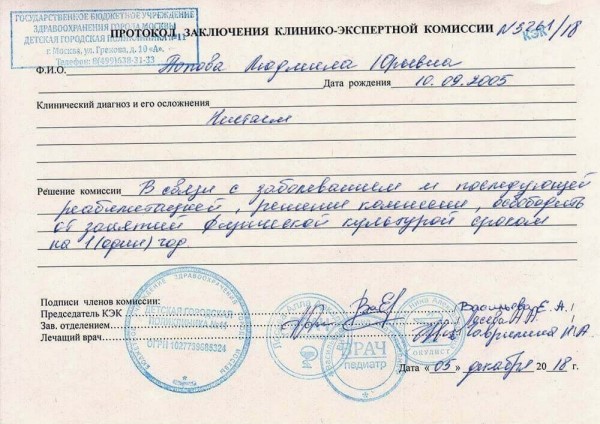 ГОСУДАРСТВЕННОЕ БЮДЖЕТНОЕ УЧРЕЖДЕНИЕ
ЗДРАВООХРАНЕНИЯ ГОРОДА МОСКВЫ
ДЕТСКАЯ ГОРОДСКАЯ
г. Москва, ул. Грекова, д. 10 «А».
Телефон: 8(499)638-31-33
ПРОТОКОЛ ЗАКЛЮЧЕНИЯ КЛИНИКО-ЭКСПЕРТНОЙ КОМИССИИ N3261/18
КЭК
Ф.И.О. Попова Людмила Юрьевна
Дата рождения 10.09.2005
Клинический диагноз и его осложнения
Нистагм
Решение комиссии В связи с заболеванием и последующей
реабилитацией, решение комиссии, освободить
от занятий физической культурой сроком
на 1 (один) год
Подписи членов комиссии:
Председатель КЭК Васильева Е.А.
Зав. отделением А.А.
Лечащий врач Гаврилина И.А.
ДЕТСКАЯ ГОРОДСКАЯ
ОГРН 1027739588324
ВРАЧ
педиатр
окулист
Дата «03» декабря 2018 г.